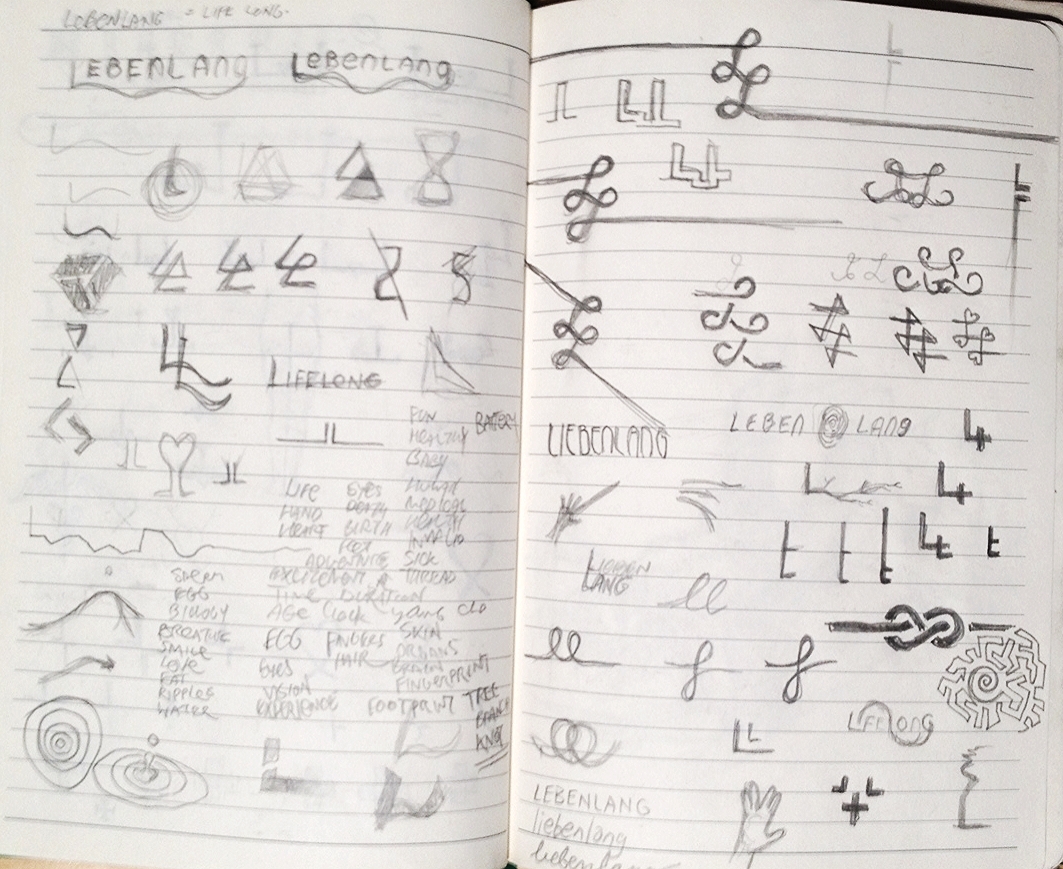 LEBENLANG = LIFE LONG.
LEBENLANG LEBENLANG
LIFELONG
FUN BATTERY
HEALTHY
LIFE EYES
HAND DEATH
HEART BIRTH
ADVENTURE SICK
EXCITEMENT THREAD
TIME DURATION
AGE CLOCK YOUNG OLD
EGG FINGERS SKIN
HAIR ORGANS
BRAIN
EYES FINGERPRINT
VISION
EXPERIENCE FOOTPRINT TREE
BRANCH
KNOT
SPERM
EGG
BIOLOGY
BREATHE
SMILE
LOVE
EAT
RIPPLES
WATER
LIEBENLANG
LEBEN LANG
LIEBEN
LANG
LIFELONG
LEBENLANG
liebenlang
liebenlang